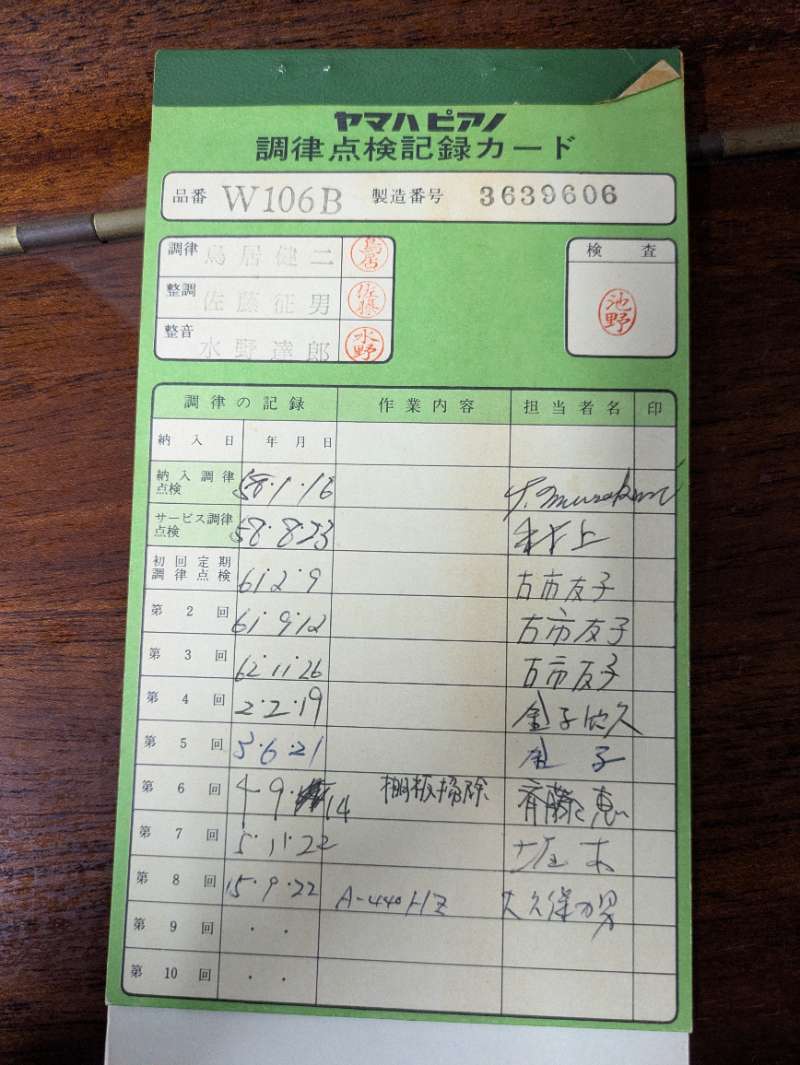 ヤマハピアノ
調律点検記録カード
品番 W106B 製造番号 3639606
調律 鳥居健二 鳥居
整調 佐藤征男 佐藤
整音 水野達郎 水野
検査
池野
調律の記録 作業内容 担当者名 印
納入日 年月日
納入調律点検 58・1・16
サービス調律点検 58・8・23 村上
初回定期調律点検 61・2・9 古市友子
第2回 61・9・12 古市友子
第3回 62・11・26 古市友子
第4回 2・2・19 金子
第5回 3・6・21 金子
第6回 4 9 14 棚板掃除 斉藤恵
第7回 5・11・22
第8回 15・9・22 A-440HZ 大久保
第9回 ・ ・
第10回 ・ ・